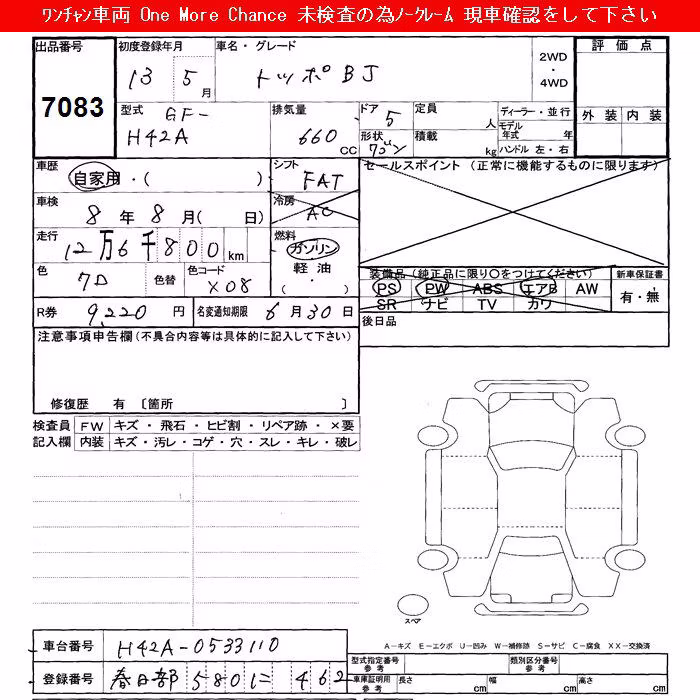 ﾜﾝﾁｬﾝ車両 One More Chance 未検査の為ﾉｰｸﾚｰﾑ 現車確認をして下さい
出品番号 初度登録年月 車名・グレード 2WD・4WD 評価点
7083 13 5月 トッポBJ
型式 GF-H42A 排気量 660 CC ドア 5 形状 ワゴン 定員 人 積載 kg ディーラー・並行 モデル年式 年 ハンドル 左・右 外装 内装
車歴 自家用・( ) シフト FAT セールスポイント (正常に機能するものに限ります)
車検 8年 8月( 日) 冷房 AC
走行 12万6千800km 燃料 ガソリン 軽油 ( ・ )
色 色替 色コード X08 装備品 (純正品に限り○をつけてください) 新車保証書
PS PW ABS エアB AW 有・無
SR ナビ TV カワ
R券 9,220円 名変通知期限 6月30日 後日品
注意事項申告欄 (不具合内容等は具体的に記入して下さい)
修復歴 有 〔箇所 〕
検査員 FW キズ・飛石・ヒビ割・リペア跡・×要
記入欄 内装 キズ・汚レ・コゲ・穴・スレ・キレ・破レ
スペア
A-キズ E-エクボ U-凹み W-補修跡 S-サビ C-腐食 XX-交換済
車台番号 H42A-0533110 型式指定番号 参考 類別区分番号 参考
登録番号 春日部 580 に 462 車庫証明用 参考 長さ cm 幅 cm 高さ cm